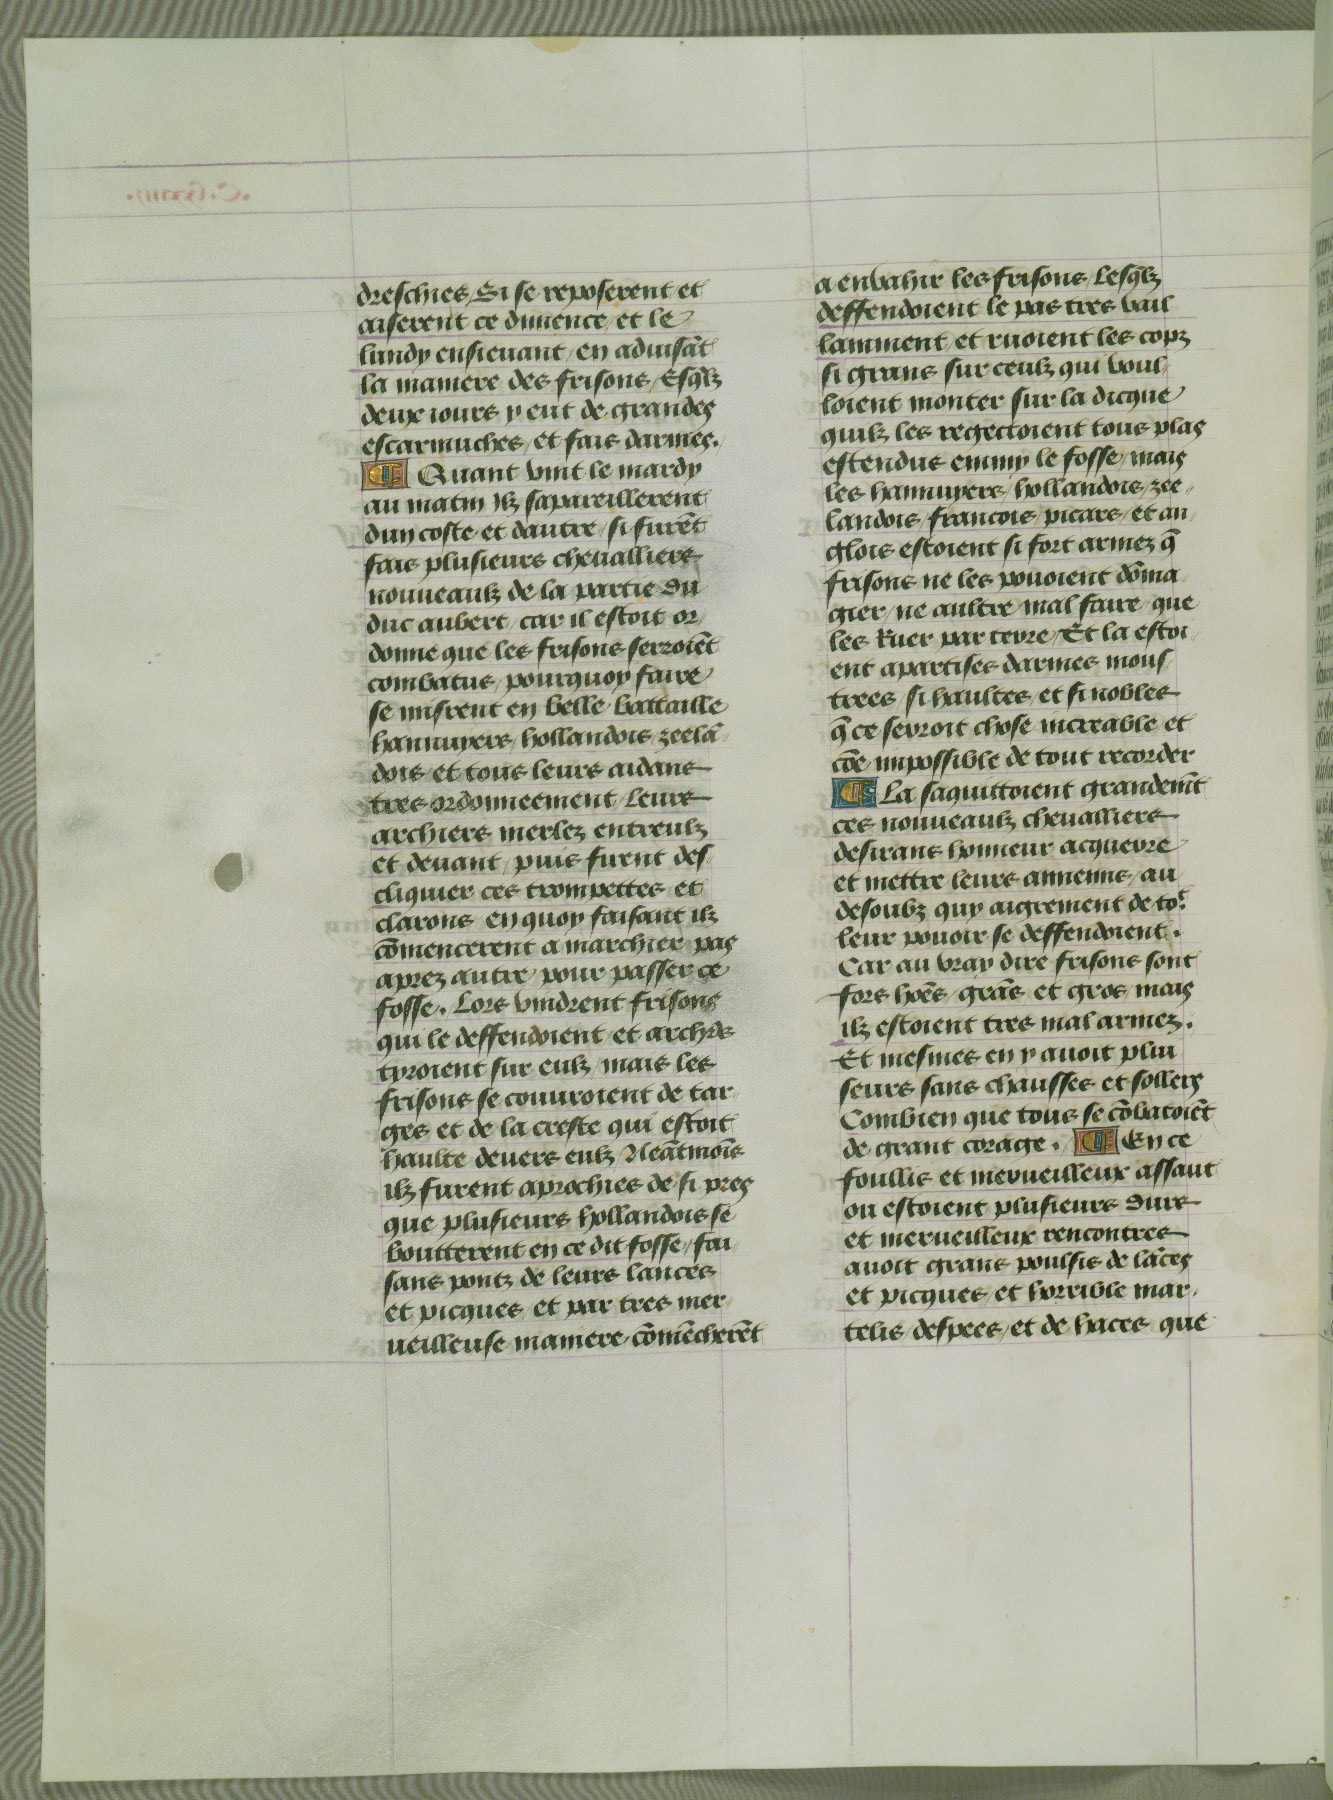 dreschies / Si se reposerent et
aiserent ce dimence / et le
lundy ensieuant / en aduisāt
la maniere des frisons / Esq̄lz
deux iours y eut de grandes
escarmuches / et fais darmes.
¶ Quant vint le mardy
au matin Jlz sapareillerent
dun coste et dautre / si furēt
fais plusieurs cheualliers
nouueaulz de la partie du
duc aubert / car il estoit or/
donne que les frisons serroiēt
combatus / pourquoy faire
se misrent en belle battaille
hannuyers / hollandois / zeelā/
dois / et tous leurs aidans
tres ordonneement / leurs
archiers merlez entreulz
et deuant / puis furent des/
cliquier ces trompettes et
clarons / en quoy faisant ilz
cōmencerent a marchier pas
aprez autre / pour passer ce
fosse. Lors vindrent frisons
qui le deffendoient / et archrs
tyroient sur eulz / mais les
frisons se couuroient de tar/
ges et de la creste qui estoit
haulte deuers eulz / Neātmoīs
ilz furent aprochies de si pres
que plusieurs hollandois se
boutterent en ce dit fosse / fai/
sans pontz de leurs lances
et picques / et par tres mer/
ueilleuse maniere / cōmēcherēt
a enuahir les frisons / Lesq̄lz
deffendoient le pas tres vail
lamment / et ruoient les copz
si grans sur ceulz qui voul/
loient monter sur la dicque
quilz les regectoient tous plas
estendus emmy le fosse / mais
les hannuyers / hollandois / zee/
landois / francois / picars / et an/
glois estoient si fort armez q̄
frisons ne les pouoient dōma/
gier / ne aultre mal faire / que
les Ruer par terre / Et la estoi/
ent apartises darmes mous/
trees / si haultes / et si nobles
q̄ ce seroit chose increable et
cōe impossible de tout recorder
¶ La saquittoient grandemēt
ces nouueaulz cheualliers
desirans honneur acquerre
et mettre leurs annemis / au
desoubz quy aigrement de to⁹
leur pouoir se deffendoient.
Car au vray dire frisons sont
fors hōes / grās et gros / mais
ilz estoient tres mal armez.
Et mesmes en y auoit plui
seurs sans chausses et sollers
Combien que tous se cōbatoiēt
de grant corage. ¶ En ce
foullis et merueilleux assaut
ou estoient plusieurs durs
et merueilleux rencontres
auoit grans poulsis de lāces
et picques / et horrible mar/
telis / despees / et de haces / que